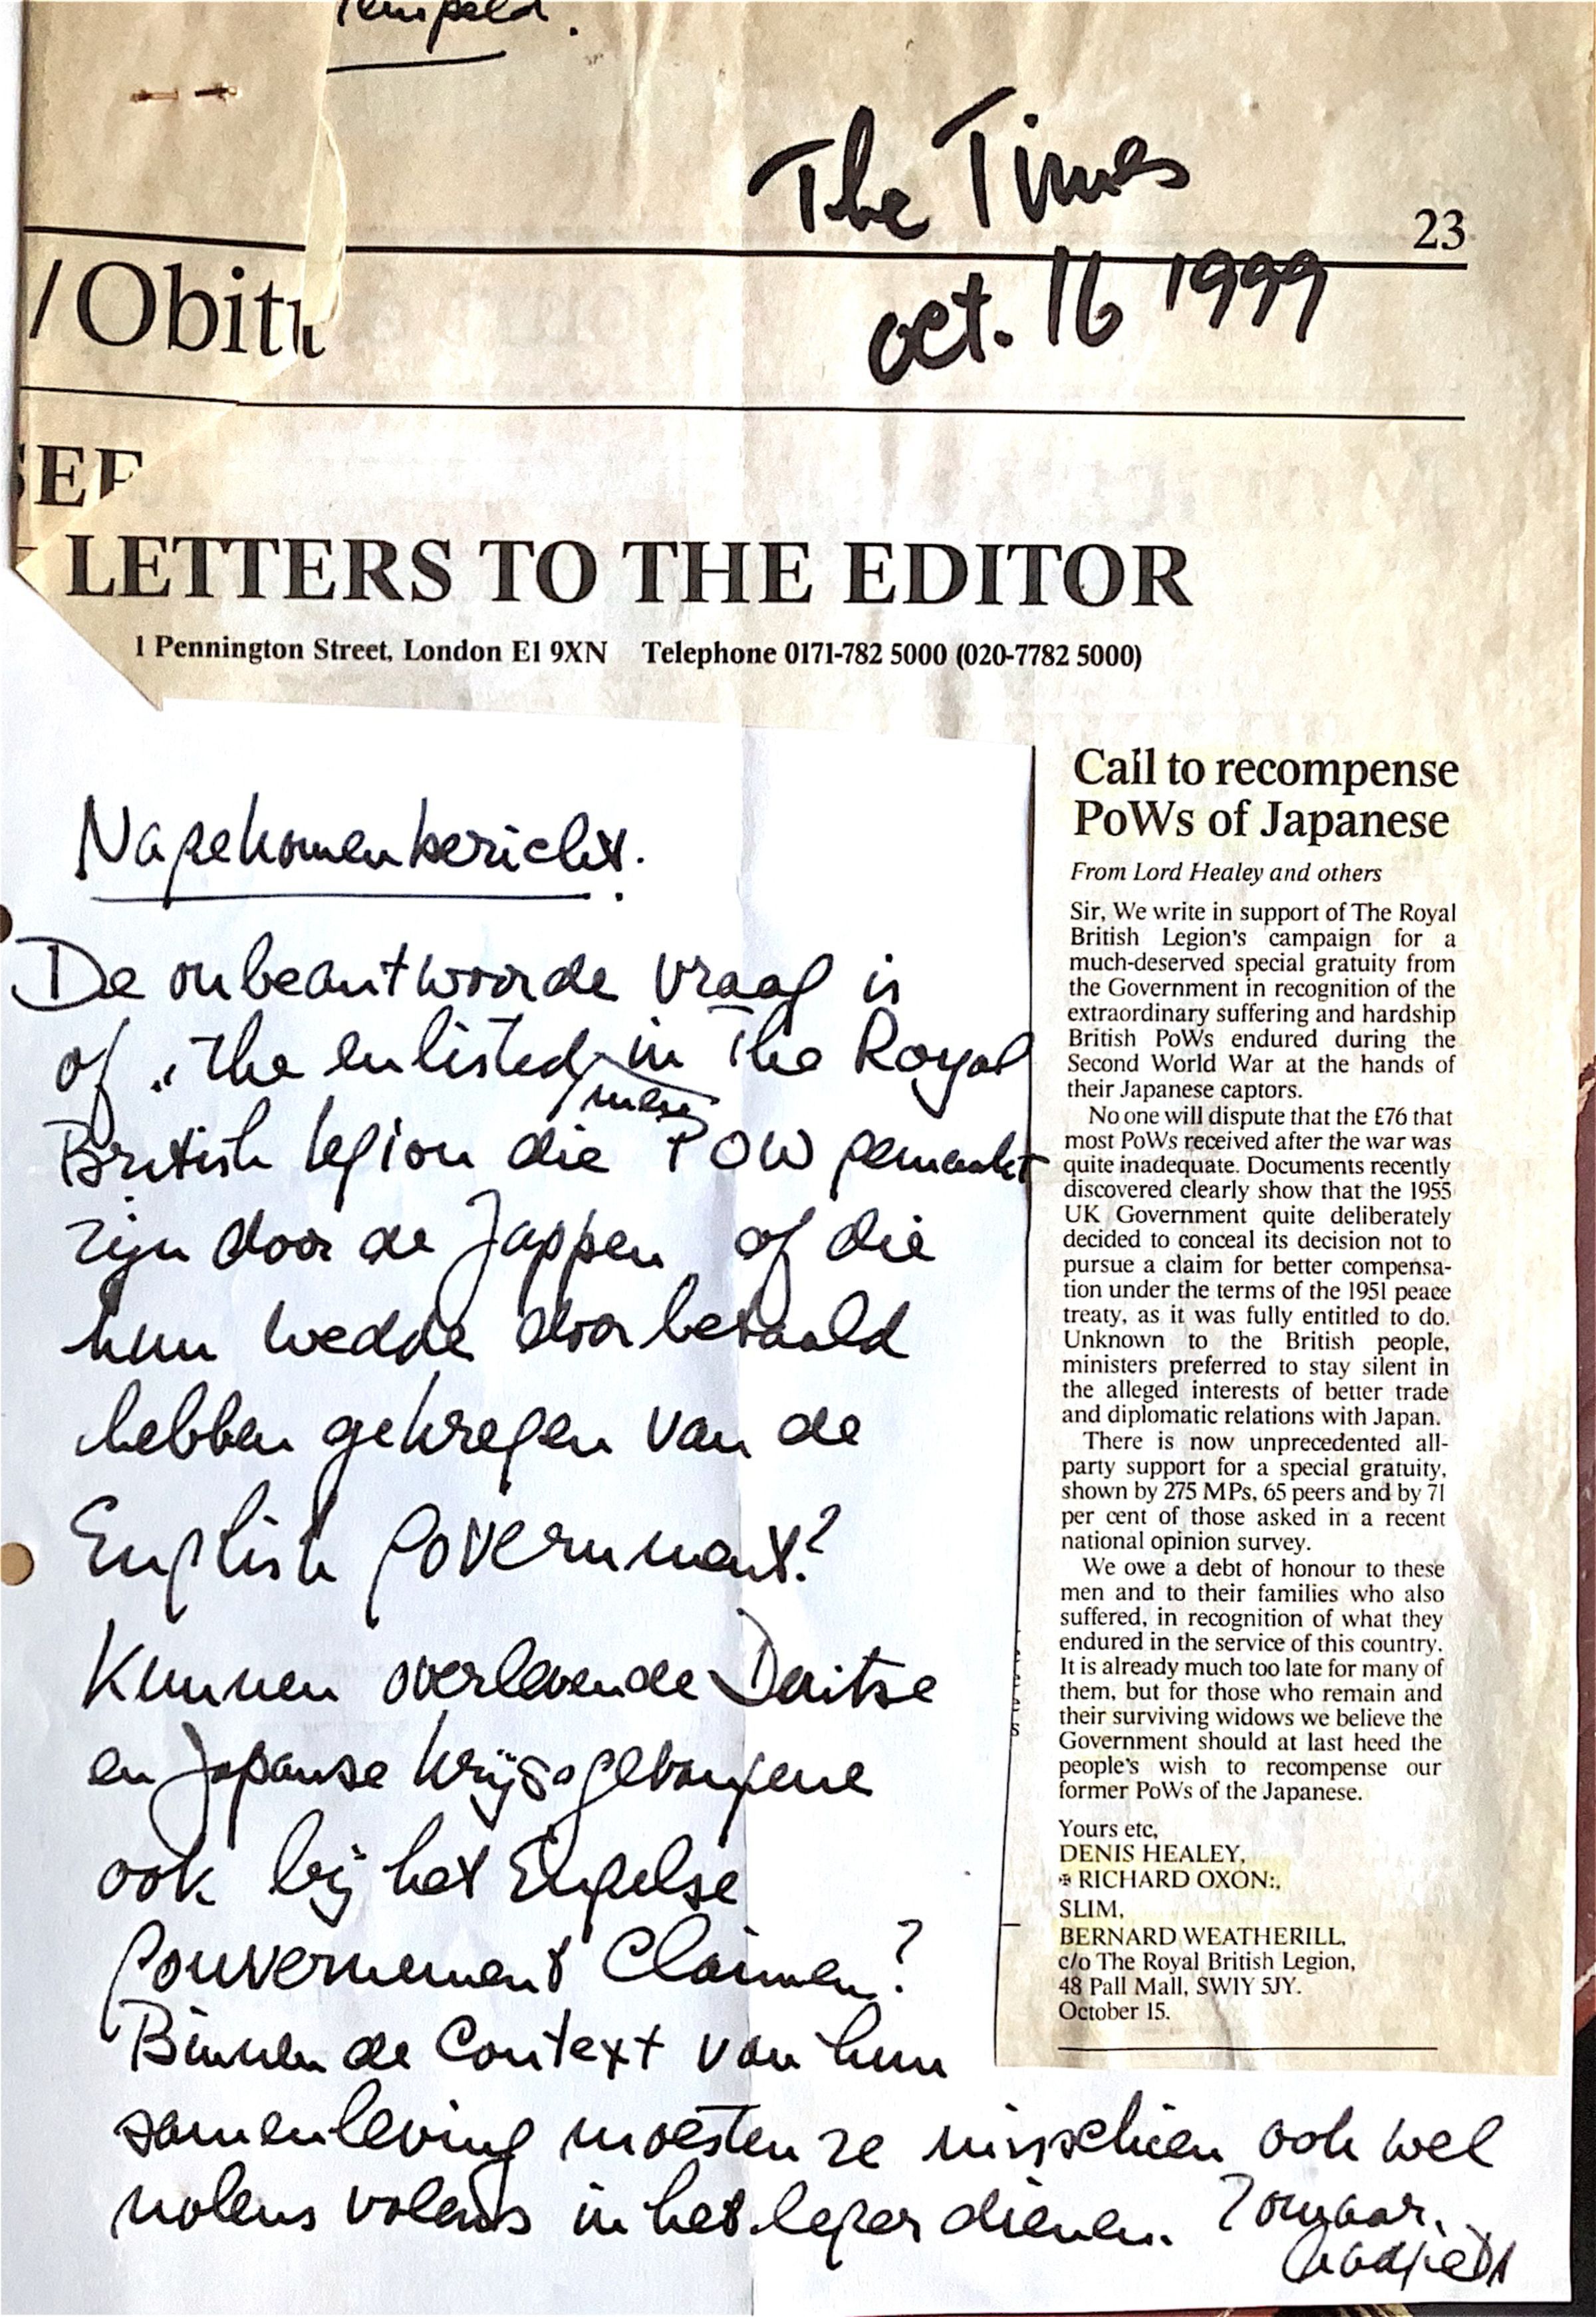 The Times
23
oct. 16 1999
/Obitu
LETTERS TO THE EDITOR
1 Pennington Street, London E1 9XN Telephone 0171-782 5000 (020-7782 5000)
Nagekomen bericht.
De onbeantwoorde vraag is
of „the enlisted men in The Royal
British legion die POW gemaakt
zijn door de Jappen of die
hun wedde doorbetaald
hebben gekregen van de
English government?
Kunnen overlevende Duitse
en Japanse krijgsgevangene
ook bij het Engelse
gouvernement Claimen?
Binnen de Context van hun
samenleving moesten ze misschien ook wel
nolens volens in het leger dienen. Zomaar.
Call to recompense
PoWs of Japanese
From Lord Healey and others
Sir, We write in support of The Royal
British Legion's campaign for a
much-deserved special gratuity from
the Government in recognition of the
extraordinary suffering and hardship
British PoWs endured during the
Second World War at the hands of
their Japanese captors.
No one will dispute that the £76 that
most PoWs received after the war was
quite inadequate. Documents recently
discovered clearly show that the 1955
UK Government quite deliberately
decided to conceal its decision not to
pursue a claim for better compensa-
tion under the terms of the 1951 peace
treaty, as it was fully entitled to do.
Unknown to the British people,
ministers preferred to stay silent in
the alleged interests of better trade
and diplomatic relations with Japan.
There is now unprecedented all-
party support for a special gratuity,
shown by 275 MPs, 65 peers and by 71
per cent of those asked in a recent
national opinion survey.
We owe a debt of honour to these
men and to their families who also
suffered, in recognition of what they
endured in the service of this country.
It is already much too late for many of
them, but for those who remain and
their surviving widows we believe the
Government should at last heed the
people's wish to recompense our
former PoWs of the Japanese.
Yours etc,
DENIS HEALEY,
✠ RICHARD OXON:,
SLIM,
BERNARD WEATHERILL,
c/o The Royal British Legion,
48 Pall Mall, SW1Y 5JY.
October 15.